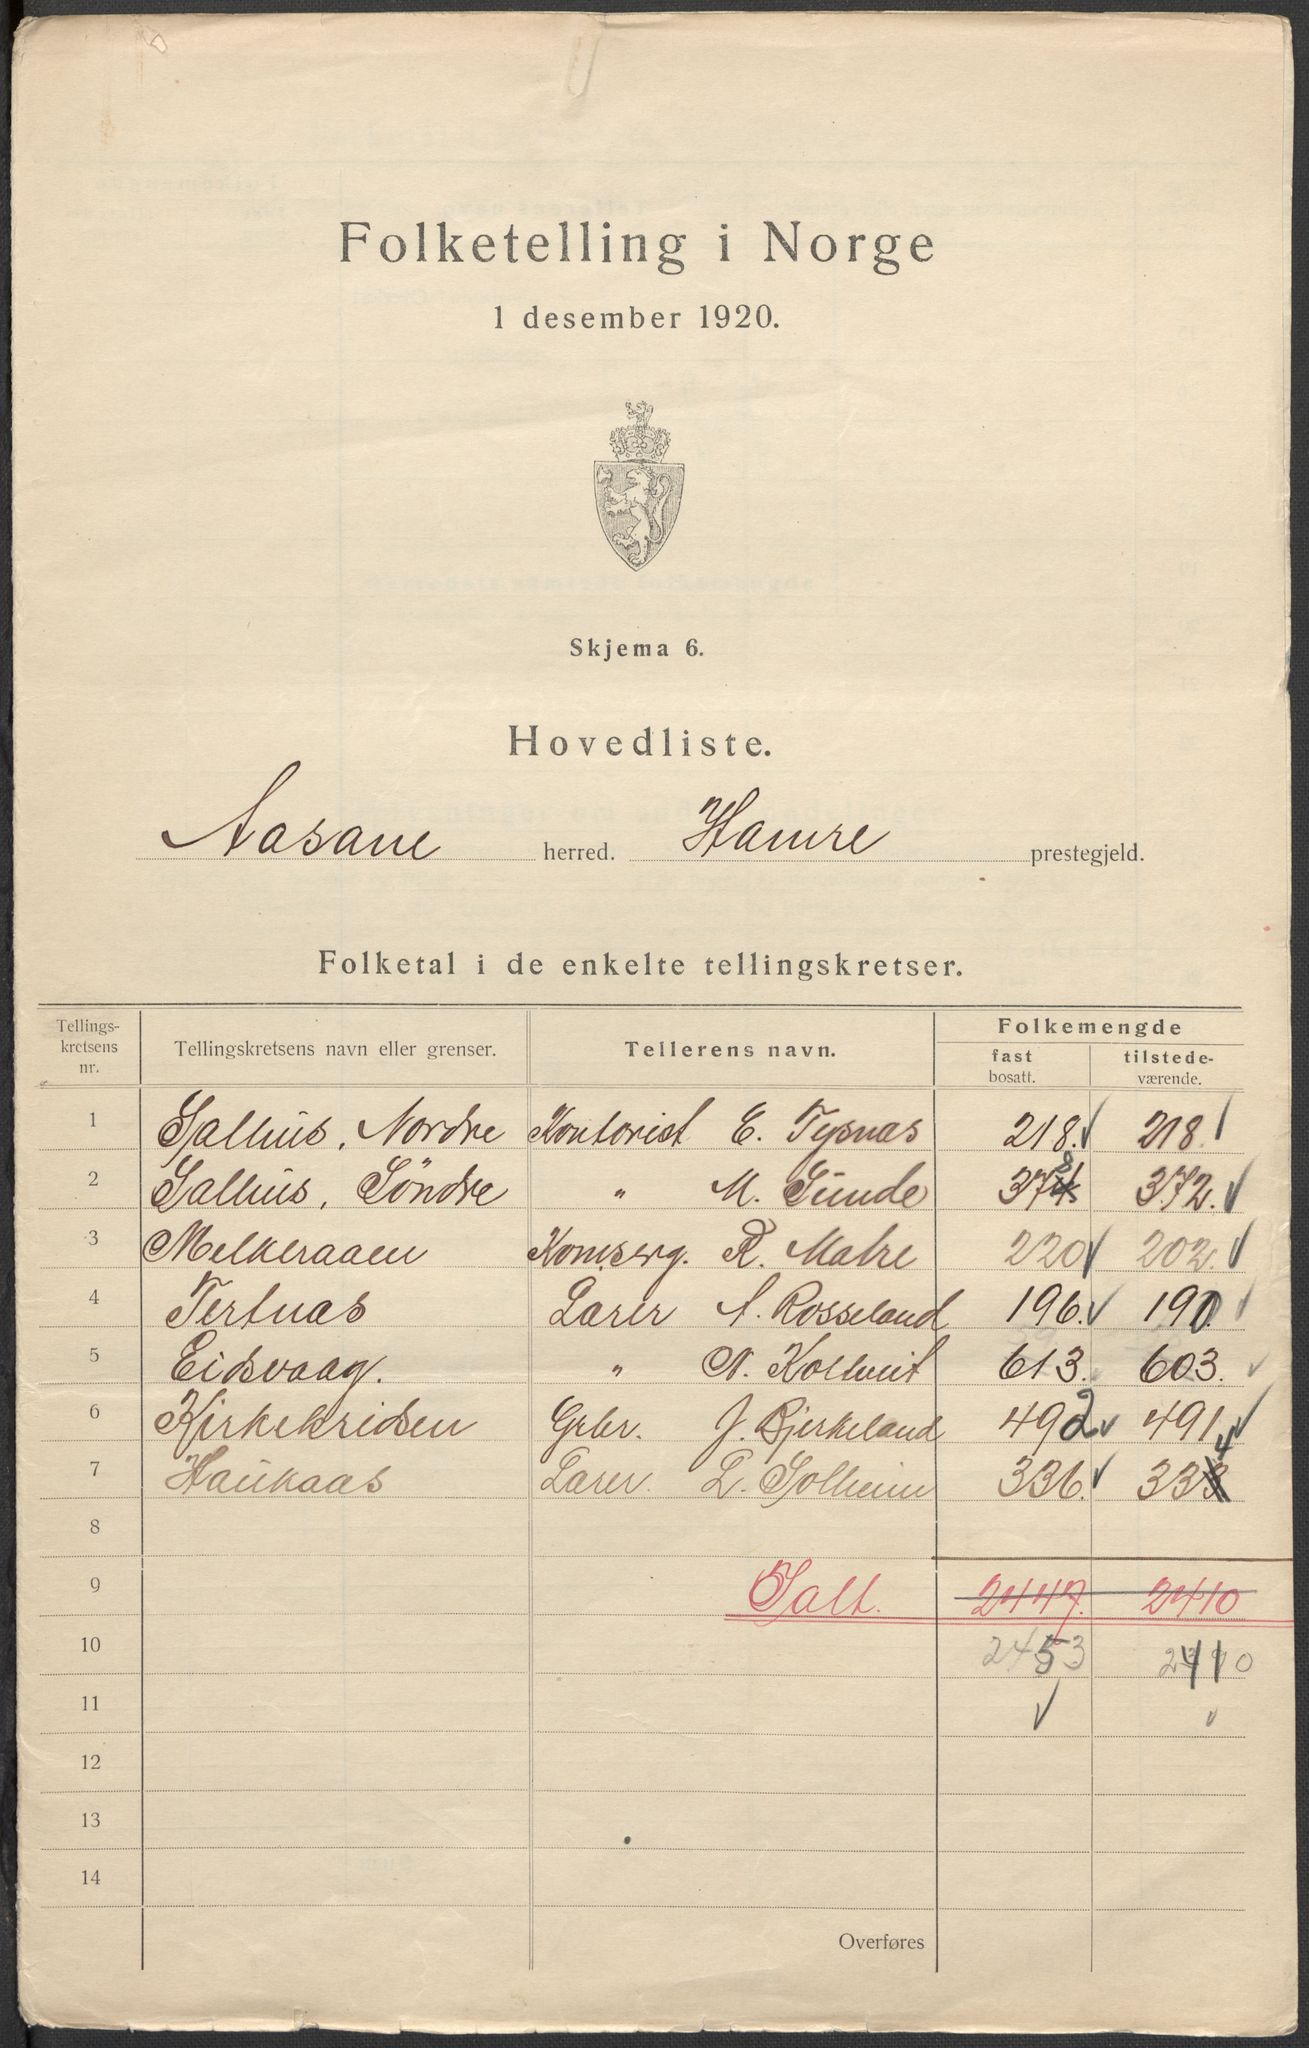 Folketelling i Norge
1 desember 1920.
Skjema 6.
Hovedliste.
Aasane herred. Hamre prestegjeld.
Folketal i de enkelte tellingskretser.
Tellings-kretsens nr. Tellingskretsens navn eller grenser. Tellerens navn. Folkemengde
fast bosatt. tilstede-værende.
1 Salhus, Nordre Kontorist E. Tysnas 218. 218.
2 Salhus, Söndre " M. Gunde 378 372.
3 Melkeraaen R. Matre 220 202.
4 Tertnas Larer A. Rosseland 196. 190.
5 Eidsvaag. " N. Koltveit 613. 603.
6 Kirkekridsen Gbr. J. Bjerkeland 492 491
7 Haukaas Larer. L. Solheim 336. 334
8
9 Salt. 2447. 2410
10 2453 2410
11
12
13
14
Overføres